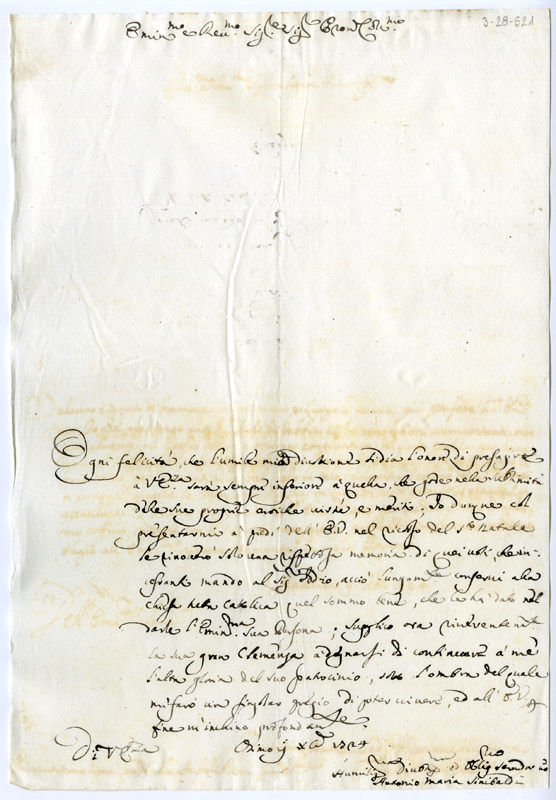 3-28-521
Emin.mo e Rev.mo Sig.r Sig.r Pron Col.mo
Ogni felicità, che l'umile mia divotione di presagire
à V. Em.za sarà sempre inferiore à quella, che gode nelle sublimità
delle sue proprie eroiche virtù e merito; Io dunque col
presentarmi a' piedi dell' E.V. nel ricorso del S.o Natale
le rinovo solo una rispettosa memoria di quei voti, che in-
cessante mando al Sig.r Iddio, acciò lungam.te conservi alla
chiesa Cattolica quel sommo bene, che le ha dato nel
darle l'Emin.ma Sua Persona; supplico ora riverentem.te
la sua gran Clemenza a degnarsi di continuare à me
l'alta gloria del suo patrocinio, sotto l'ombra del quale
mi farò un singolar pregio di poter vivere, ed all' E.V.
fine m'inchino profondam.te
Di V. Em.za
1724
Humiliss.o Divotiss.o ed Oblig.mo Servidore
Antonio Maria Sinibaldi